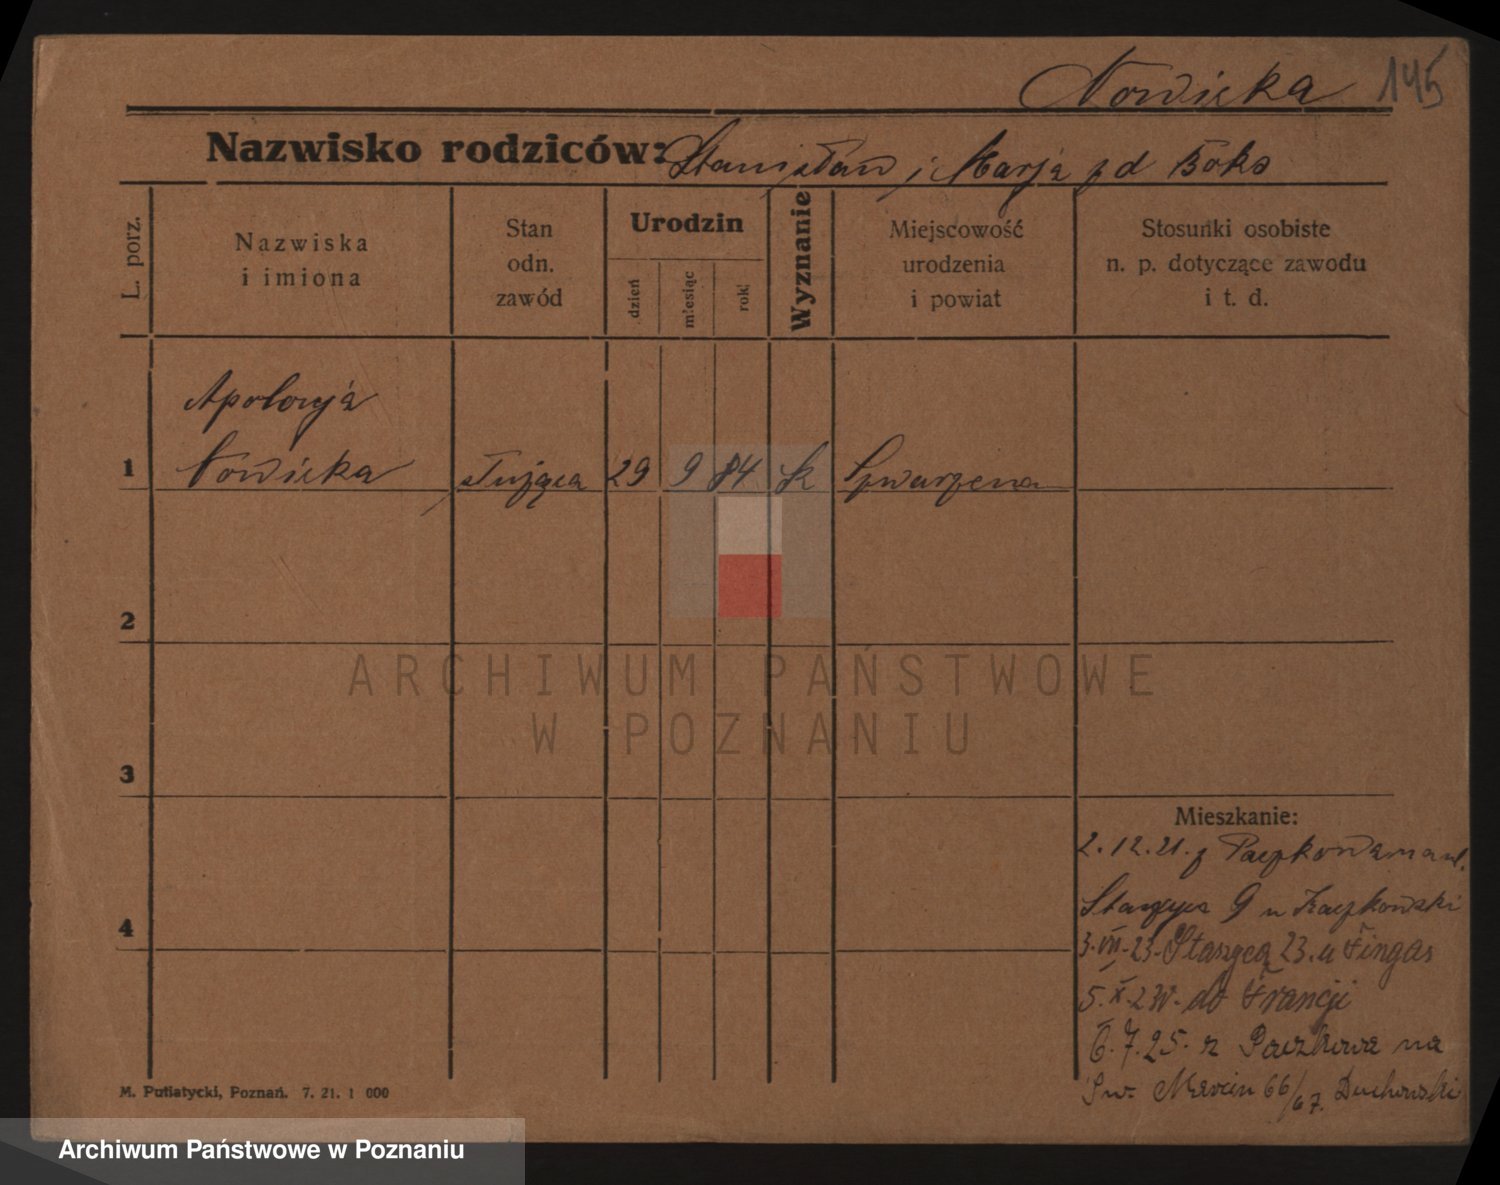 Nowicka 145
Nazwisko rodziców: Stanisław i Marja z d Boks
L. porz.
Nazwiska
i imiona
Stan
odn.
zawód
Urodzin
dzień
miesiąc
rok
Wyznanie
Miejscowość
urodzenia
i powiat
Stosunki osobiste
n. p. dotyczące zawodu
i t. d.
Apolonja
1 Nowicka służąca 29 9 84 k Swarzena
2
ARCHIWUM PAŃSTWOWE
W POZNANIU
3
Mieszkanie:
2.12.21. z Paczkowa na ul.
4 Staszyca 9 u Kaczkowski
3.VII.23. Staszyca 23. u Fingas
5.X.2 W. do Francji
6.7.25. z Paczkowa na
Św. Marcin 66/67. Duchowski
M. Putiatycki, Poznań. 7. 21. 1 000
Archiwum Państwowe w Poznaniu